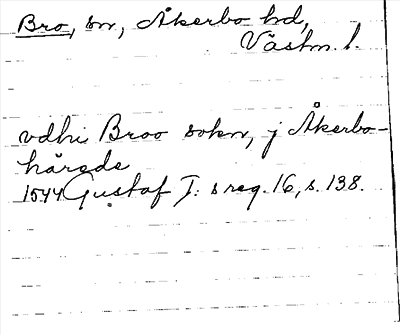 Bro, sn, Åkerbo hd,
Västm. l.
vdhi Broo sokn, j Åkerbo-
härede
1544 Gustaf I:s reg. 16, s. 138.